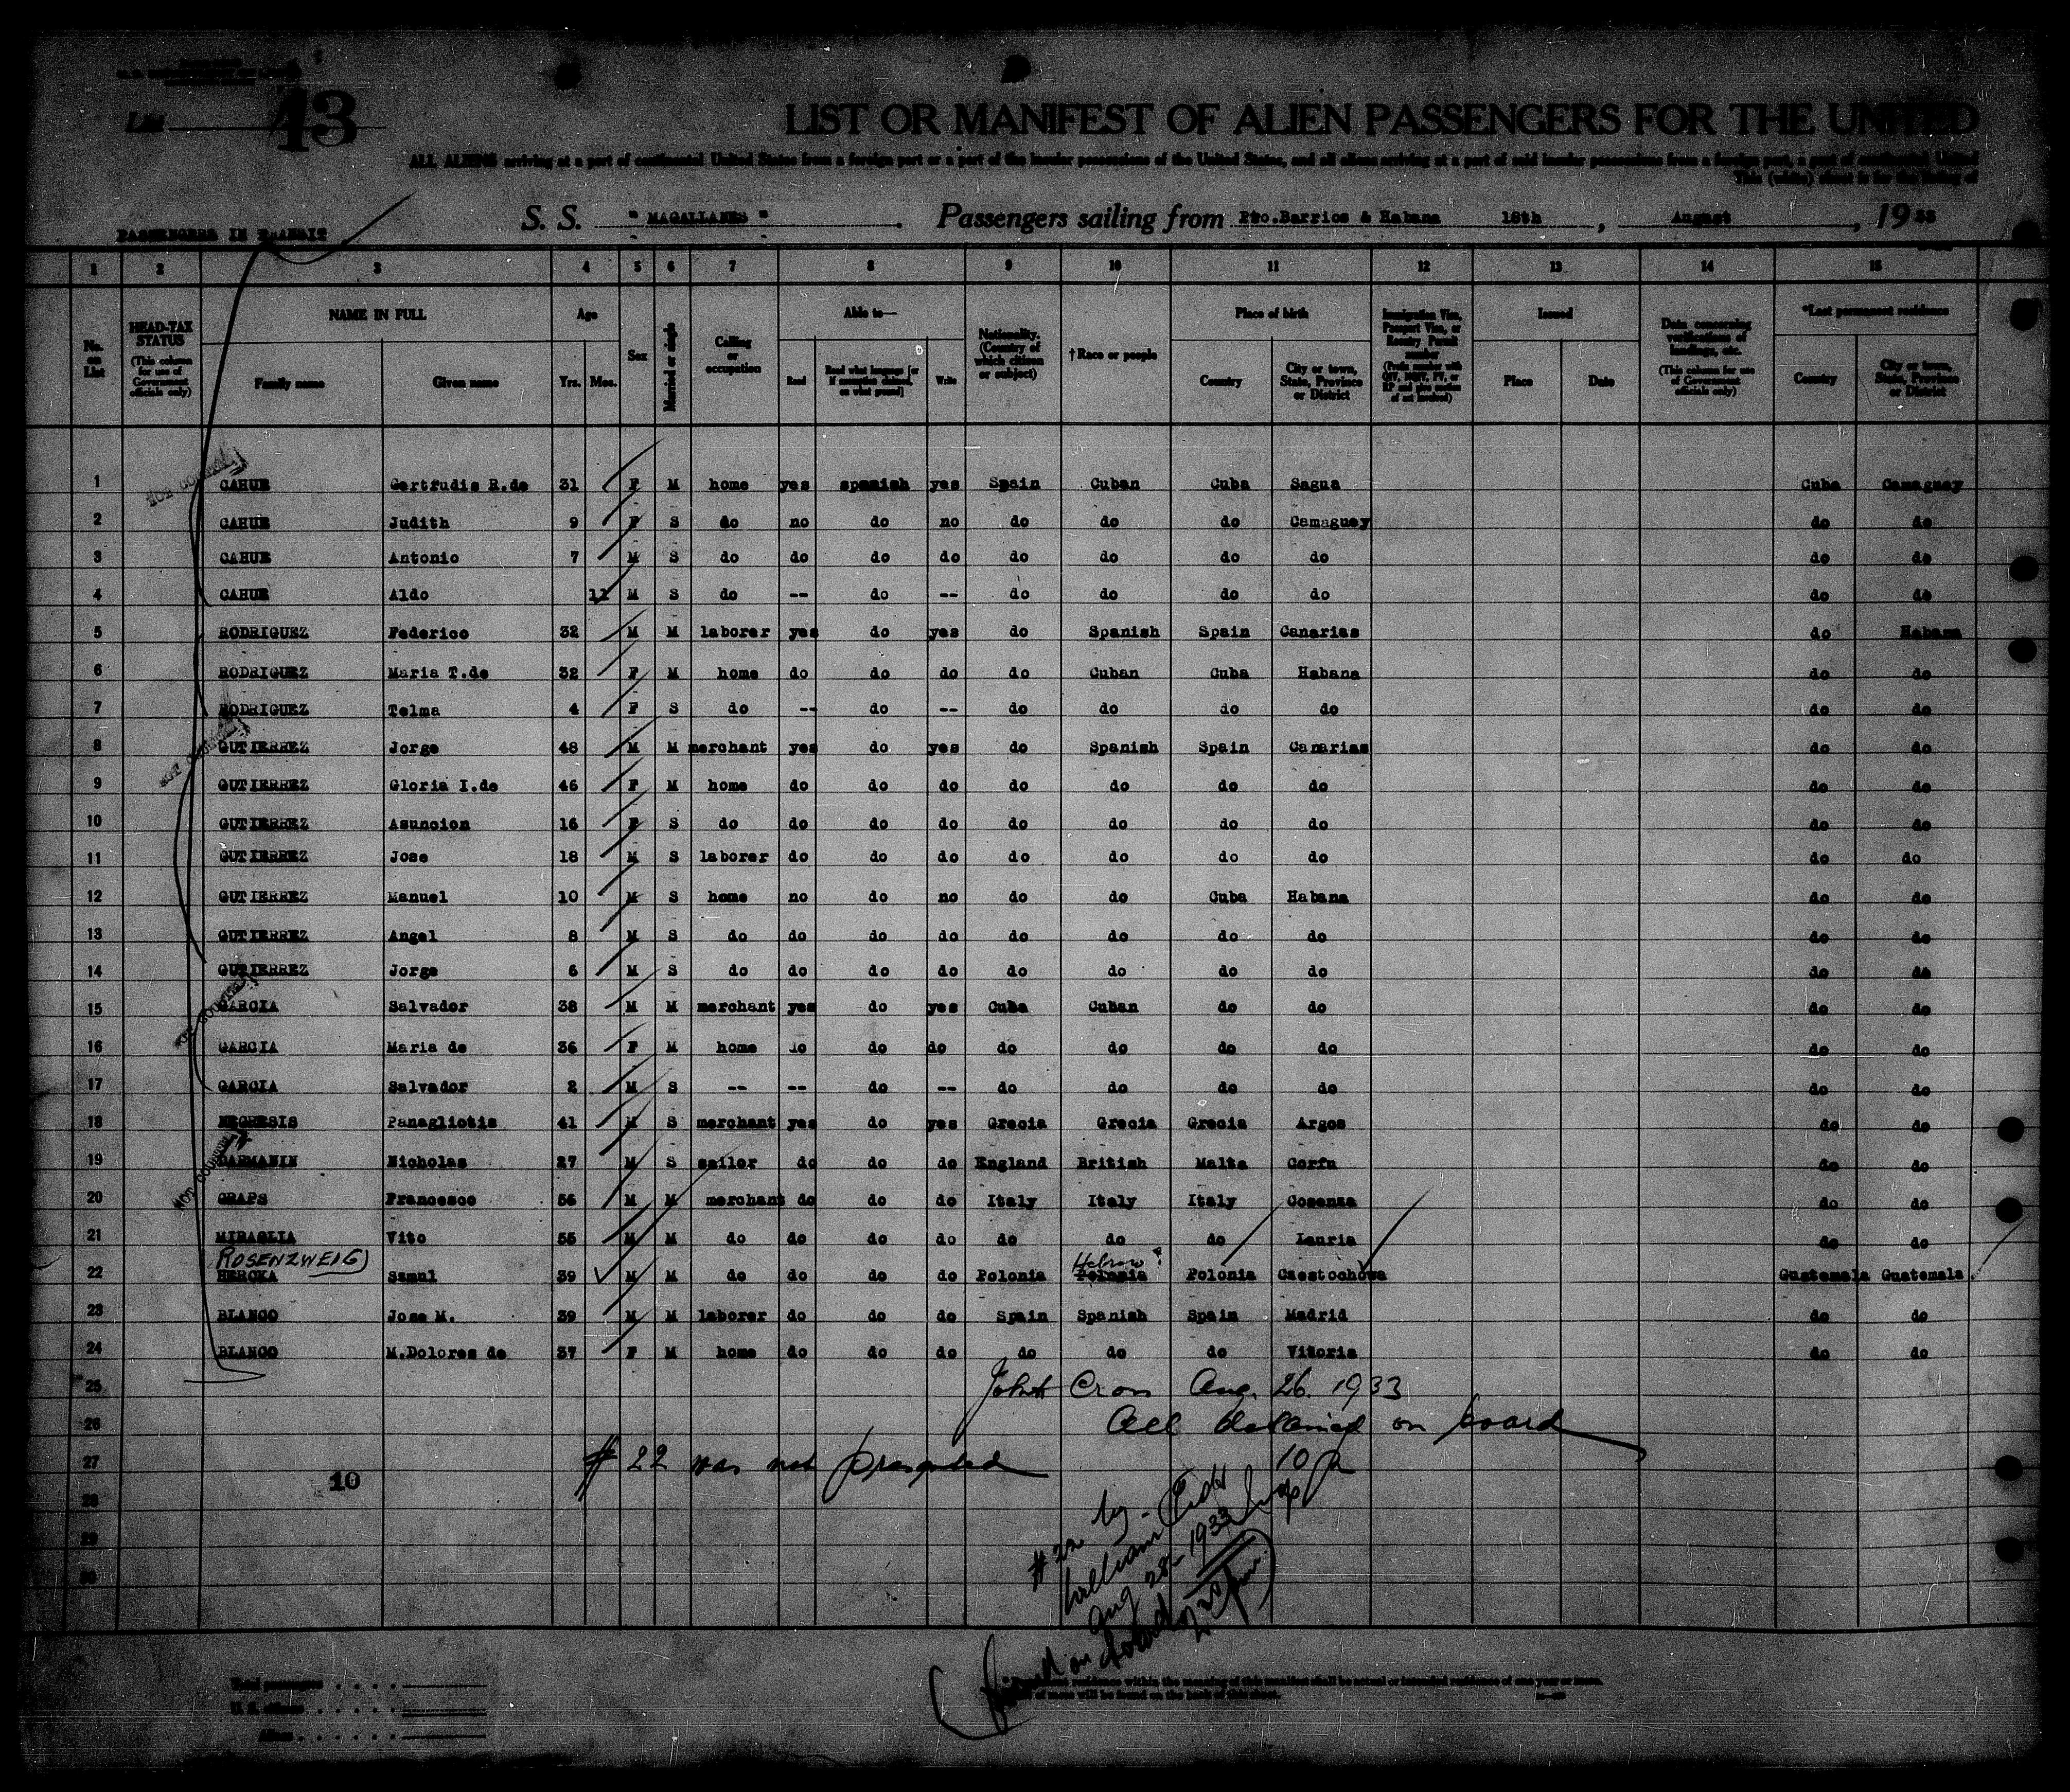 List 13
LIST OR MANIFEST OF ALIEN PASSENGERS FOR THE UNITED
ALL ALIENS arriving at a port of continental United States from a foreign port or a port of the insular possessions of the United States, and all aliens arriving at a port of said insular possessions from a foreign port, a port of continental United
This (white) sheet is for the listing of
S. S. "MAGALLANES". Passengers sailing from Pto.Barrios & Habana 18th, August, 1933
PASSENGERS IN TRANSIT
1 2 3 4 5 6 7 8 9 10 11 12 13 14 15
No. on List
HEAD-TAX STATUS (This column for use of Government officials only)
NAME IN FULL Family name Given name
Age Yrs. Mos.
Sex
Married or single
Calling or occupation
Able to— Read Read what language [or if exemption claimed, on what ground] Write
Nationality, (Country of which citizen or subject)
†Race or people
Place of birth Country City or town, State, Province or District
Immigration Visa, Passport Visa, or Reentry Permit number
Issued Place Date
Data concerning verifications of landings, etc. (This column for use of Government officials only)
*Last permanent residence Country City or town, State, Province or District
1 CAHUE Gertrudis R.de 31 F M home yes spanish yes Spain Cuban Cuba Sagua Cuba Camaguey
2 CAHUE Judith 9 F S do no do no do do do Camaguey do do
3 CAHUE Antonio 7 M S do do do do do do do do do do
4 CAHUE Aldo 11 M S do -- do -- do do do do do do
5 RODRIGUEZ Federico 32 M M laborer yes do yes do Spanish Spain Canarias do Habana
6 RODRIGUEZ Maria T.de 32 F M home do do do do Cuban Cuba Habana do do
7 RODRIGUEZ Telma 4 F S do -- do -- do do do do do do
8 GUTIERREZ Jorge 48 M M merchant yes do yes do Spanish Spain Canarias do do
9 GUTIERREZ Gloria I.de 46 F M home do do do do do do do do do
10 GUTIERREZ Asuncion 16 F S do do do do do do do do do do
11 GUTIERREZ Jose 18 M S laborer do do do do do do do do do
12 GUTIERREZ Manuel 10 M S home no do no do do Cuba Habana do do
13 GUTIERREZ Angel 8 M S do do do do do do do do do do
14 GUTIERREZ Jorge 6 M S do do do do do do do do do do
15 GARCIA Salvador 38 M M merchant yes do yes Cuba Cuban do do do do
16 GARCIA Maria de 36 F M home do do do do do do do do do
17 GARCIA Salvador 2 M S -- -- do -- do do do do do do
18 NEGRESIS Panagliotis 41 M S merchant yes do yes Grecia Grecia Grecia Argos do do
19 DARMANIN Nicholas 27 M S sailor do do do England British Malta Corfu do do
20 GRAPS Francesco 56 M M merchant do do do Italy Italy Italy Cosenza do do
21 MIRAGLIA Vito 55 M M do do do do do do do Lauria do do
ROSENZWEIG) Hebrew
22 HERCKA Samul 39 M M do do do do Polonia Polonia Polonia Czestochowa Guatemala Guatemala
23 BLANCO Jose M. 39 M M laborer do do do Spain Spanish Spain Madrid do do
24 BLANCO M.Dolores de 37 F M home do do do do do do Vitoria do do
25 John Cron Aug. 26. 1933
26 All detained on board
27 #22 was not presented
10
28
29
30
#22
William
Aug 28 1933
on board
Total passengers
U. S. citizens
Aliens
residence within the meaning of this manifest shall be actual or intended residence of one year or more.
of races will be found on the back of this sheet.